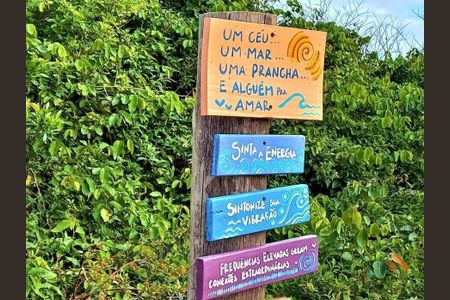 UM CÉU...
UM MAR...
UMA PRANCHA...
E ALGUÉM PRA
AMAR
SINTA A ENERGIA
SINTONIZE SUA
VIBRAÇÃO
FREQUÊNCIAS ELEVADAS GERAM
CONEXÕES EXTRAORDINÁRIAS